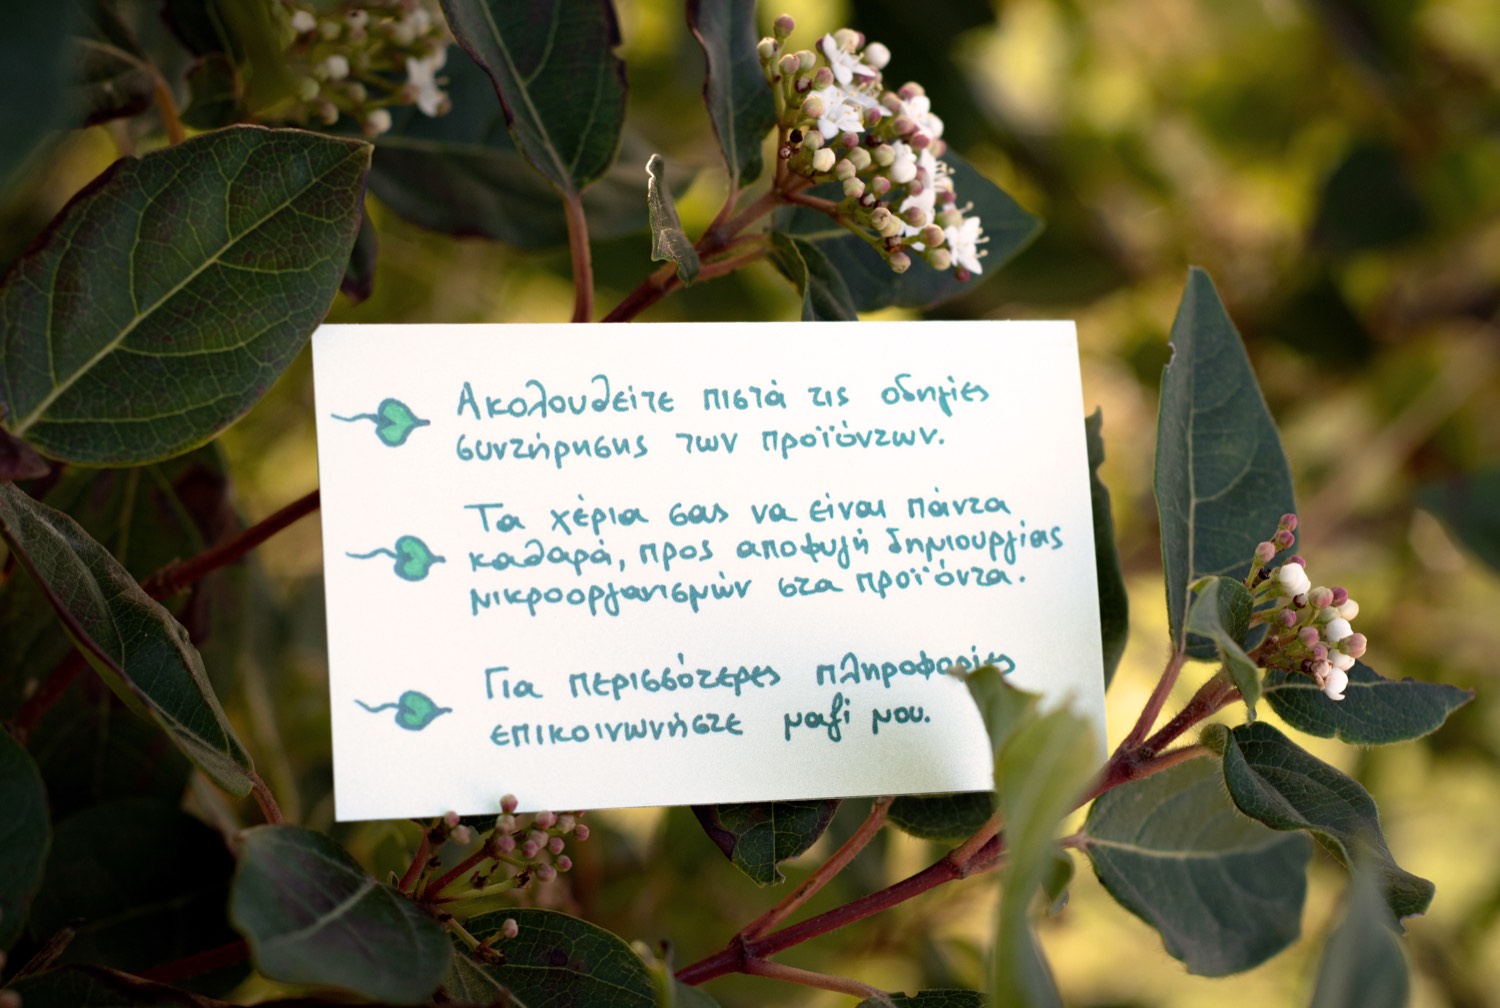 Ακολουθείτε πιστά τις οδηγίες
συντήρησης των προϊόντων.
Τα χέρια σας να είναι πάντα
καθαρά, προς αποφυγή δημιουργίας
μικροοργανισμών στα προϊόντα.
Για περισσότερες πληροφορίες
επικοινωνήστε μαζί μου.